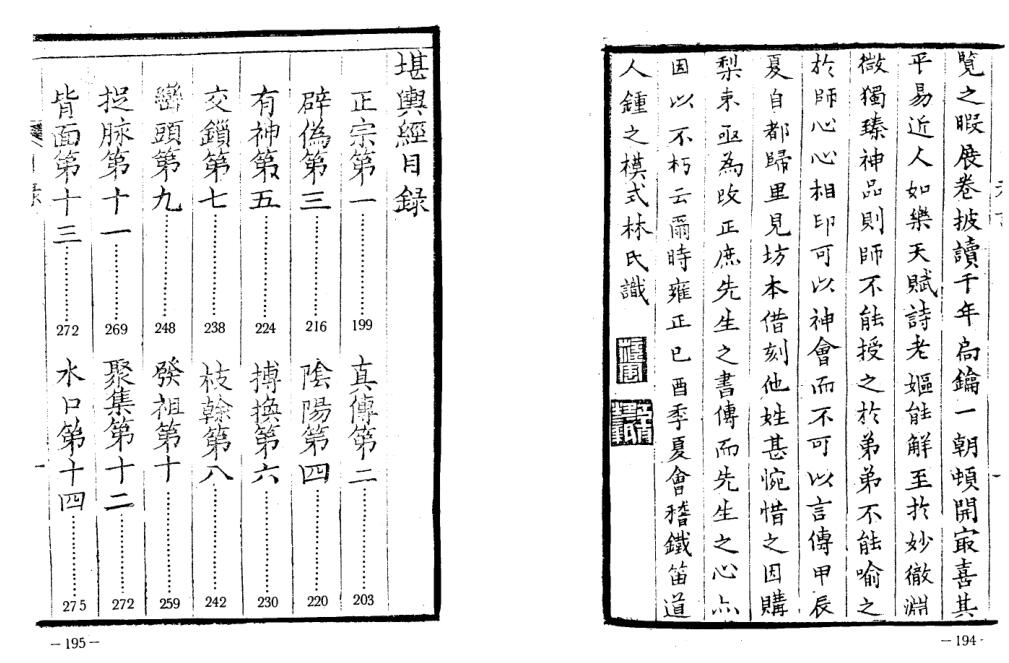 覽之暇展卷披讀千年扃鑰一朝頓開㝡喜其
平易近人如樂天賦詩老嫗能解至於妙徹淵
微獨臻神品則師不能授之於弟弟不能喻之
於師心心相印可以神會而不可以言傳甲辰
夏自都歸里見坊本借刻他姓甚惋惜之因購
梨朿亟為改正庶先生之書傳而先生之心亦
因以不朽云爾時雍正己酉季夏會稽鐵笛道
人鍾之模式林氏識
—194—
堪輿經目錄
正宗第一 199 真傳第二 203
辟偽第三 216 陰陽第四 220
有神第五 224 摶換第六 230
交鎖第七 238 枝幹第八 242
巒頭第九 248 發祖第十 259
捉脉第十一 269 聚集第十二 272
背面第十三 272 水口第十四 275
—195—